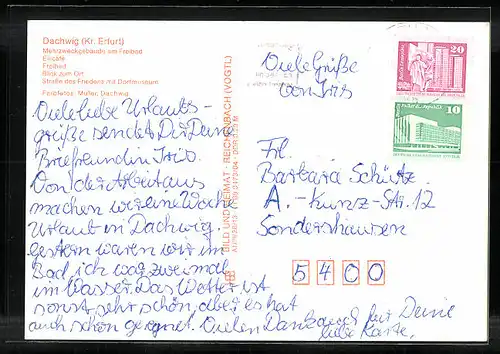 Dachwig (Kr. Erfurt)
Mehrzweckgebäude am Freibad
Eiscafé
Freibad
Blick zum Ort
Straße des Friedens mit Dorfmuseum
Farbfotos: Müller, Dachwig
Viele liebe Urlaubs-
grüße sendet Dir Deine
Brieffreundin Iris.
Von der Arbeit aus
machen wir eine Woche
Urlaub in Dachwig.
Gestern waren wir im
Bad, ich war zweimal
im Wasser. Das Wetter ist
sonst sehr schön, aber es hat
auch schon geregnet. Vielen Dank auch für Deine
liebe Karte.
BILD UND HEIMAT · REICHENBACH (VOGTL)
Viele Grüße
von Iris
20
10
Frl.
Barbara Schütz
A.-Kunz-Str. 12
Sondershausen
5400